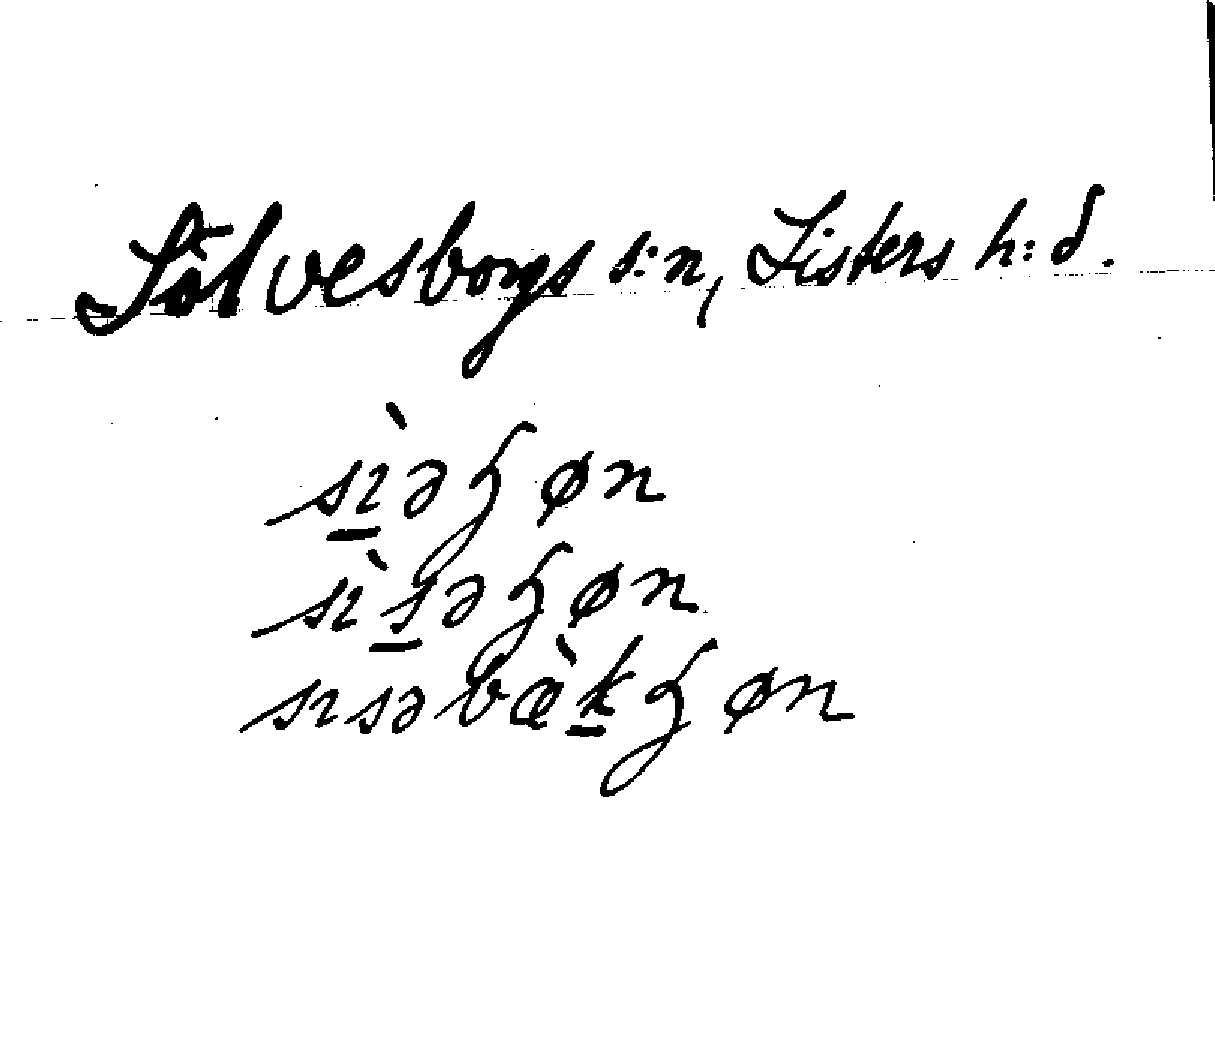 Sölvesborgs s:n, Listers h:d.
sı̲̀əɧøn
sı̀s̲əɧøn
sısəbæ̀k̲ɧøn